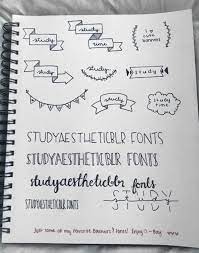 study
study time
I ♡ cute banners
study
study
study
study time
STUDYAESTHETICBLR FONTS
STUDYAESTHETICBLR FONTS
studyaestheticblr fonts
STUDYAESTHETICBLR FONTS
STUDY
Just some of my favorite Banners & Fonts! Enjoy :)